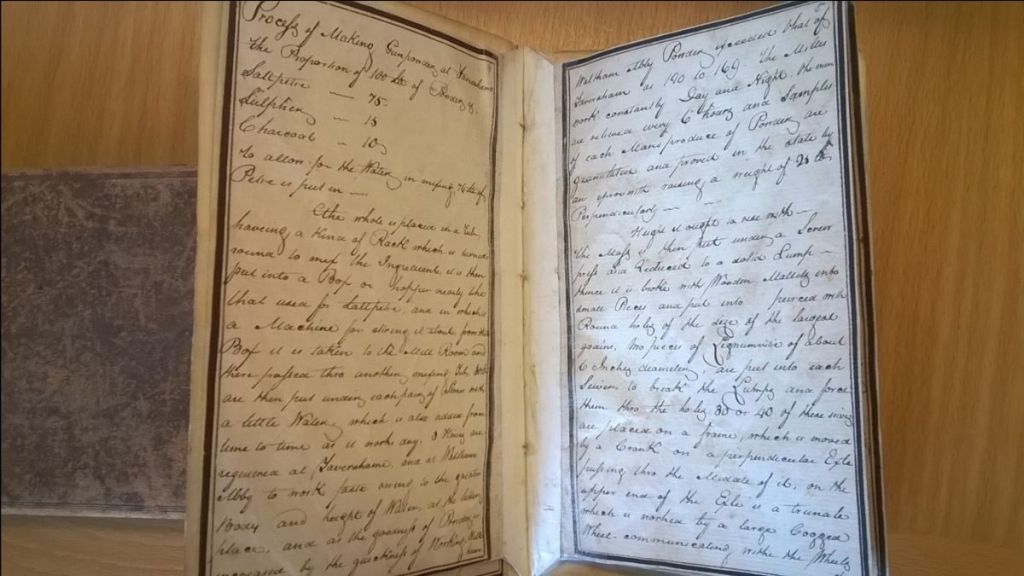 Process of Making Gunpowder at Faversham
the Proportion of 100 lb of Powder is
Saltpetre — 75
Sulpher — 15
Charcoal — 10
to allow for the Water in mixing 76 lb of
Petre is put in —
the whole is placed in a Tub
having a Kind of Rack which is turned
round to mix the Ingredients, it is then
put into a Box or Hopper nearly like
that used for Saltpetre, and in which
a Machine for stiring it about, from the
Box it is taken to the Mill Room and
there passed thro another mixing Tub
are then put under each pair of Stones with
a little Water, which is also added from
time to time as it works dry. 8 Hours are
requiered at Faversham, and at Waltham
Abby to work paste owing to the greater
Body and height of Water, at the latter
place, and as the goodness of Powder is
increased by the quickness of Working,
Waltham Abby Powder exceeded that of
Faversham as 180 to 169. The Milles
work constantly Day and Night, the men
are relieved every 6 Hours and Samples
of each Mans produce of Powder are
granulated and proved in the state by
an eprovette raising a weight of
Perpendicularly — —
Height it ought to rise with —
The Mass is then put under a Screw
press and Reduced to a solid Lump —
thence it is broke with Wooden Mallets into
small Pieces and put into pierced with
Round holes of the size of the largest
grains, two pieces of Lignumvite of about
6 Inches diameter are put into each
Seives to break the Lumps and force
them thro the holes 30 or 40 of these seives
are placed on a frame which is moved
by a Crank on a perpendicular Exle
passing thro the Middle of it, on the
upper end of the Exle is a trundle
which is worked by a large Cogged
Wheel communicating withe the Wheels